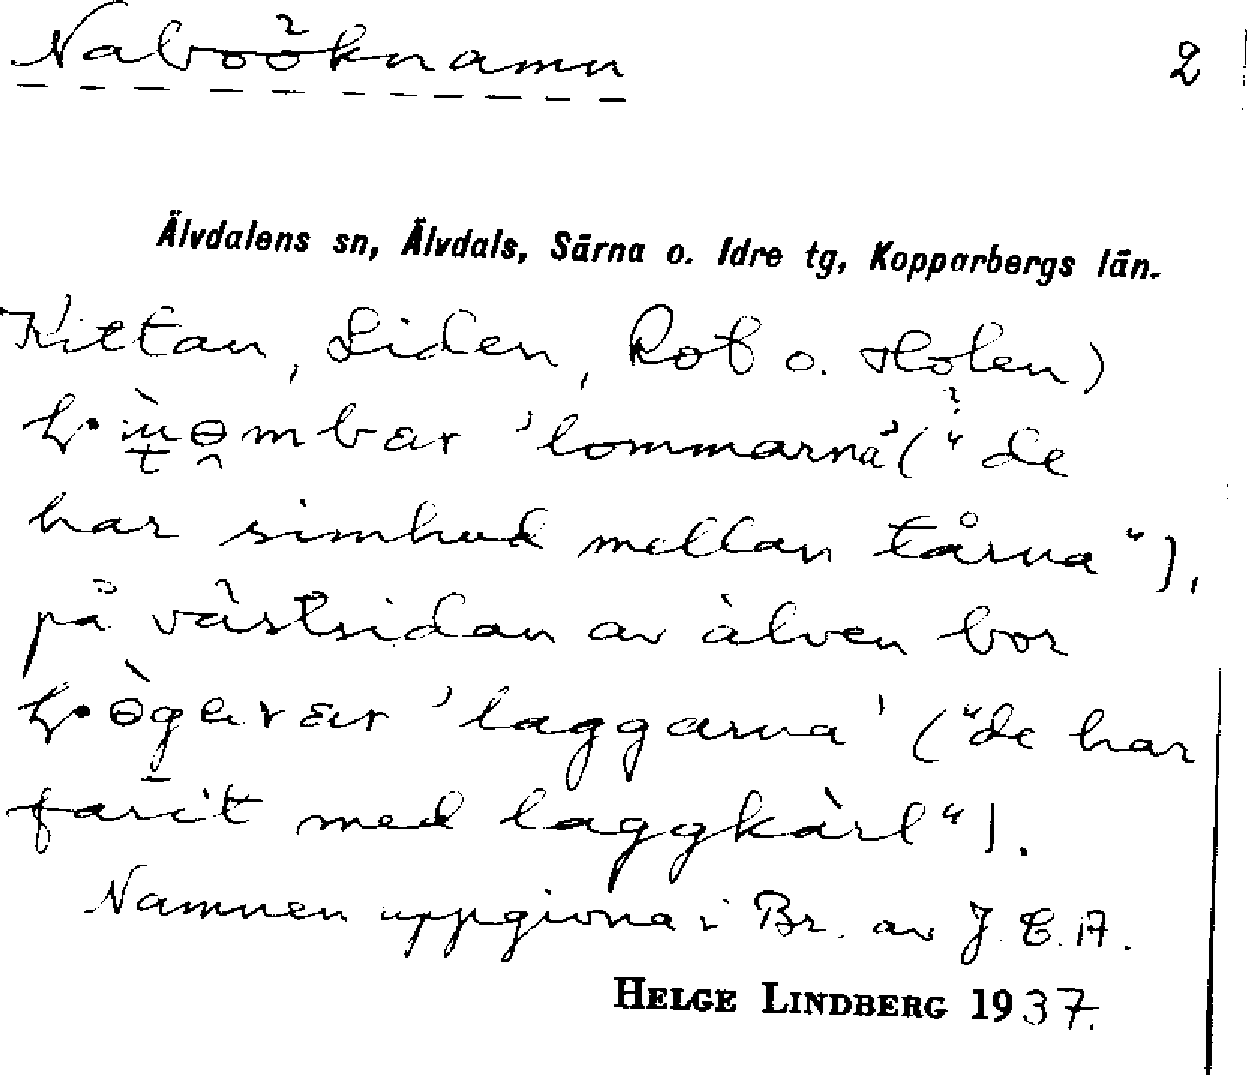 Naboöknamn 2
Älvdalens sn, Älvdals, Särna o. Idre tg, Kopparbergs län.
Kittan, Liden, Rot o. Holen)
'lommarna' ("de
har simhud mellan tårna"),
på västsidan av älven bor
'laggarna' ("de har
farit med laggkärl").
Namnen uppgivna i Br. av J. E. A.
HELGE LINDBERG 1937.